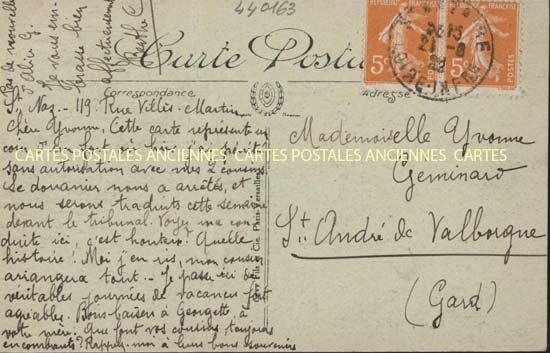 440163
Pas de nouvelles
d'Alice G.
Je vous em-
brasse bien
affectueusement
Marthe C
Carte Postale
Correspondance
Adresse
St Naz. 119 Rue Villès-Martin
Chère Yvonne, Cette carte représente un
coin du fort où hier j'ai pénétré
sans autorisation avec mes 2 cousins.
Le douanier nous a arrêtés, et
nous serons traduits cette semaine
devant le tribunal. Voyez ma con
duite ici, c'est honteux! Quelle
histoire! Moi j'en ris, mon cousin
arrangera tout. Je passe ici de
véritables journées de vacances fort
agréables. Bons baisers à Georgette, à
votre mère. Que font vos cousins toujours
encombrants? Rappelez-moi à leurs bons souvenirs
Mademoiselle Yvonne
Geminard
St. André de Valborgne
(Gard)
5c
5c
CARTES POSTALES ANCIENNES CARTES POSTALES ANCIENNES CARTES